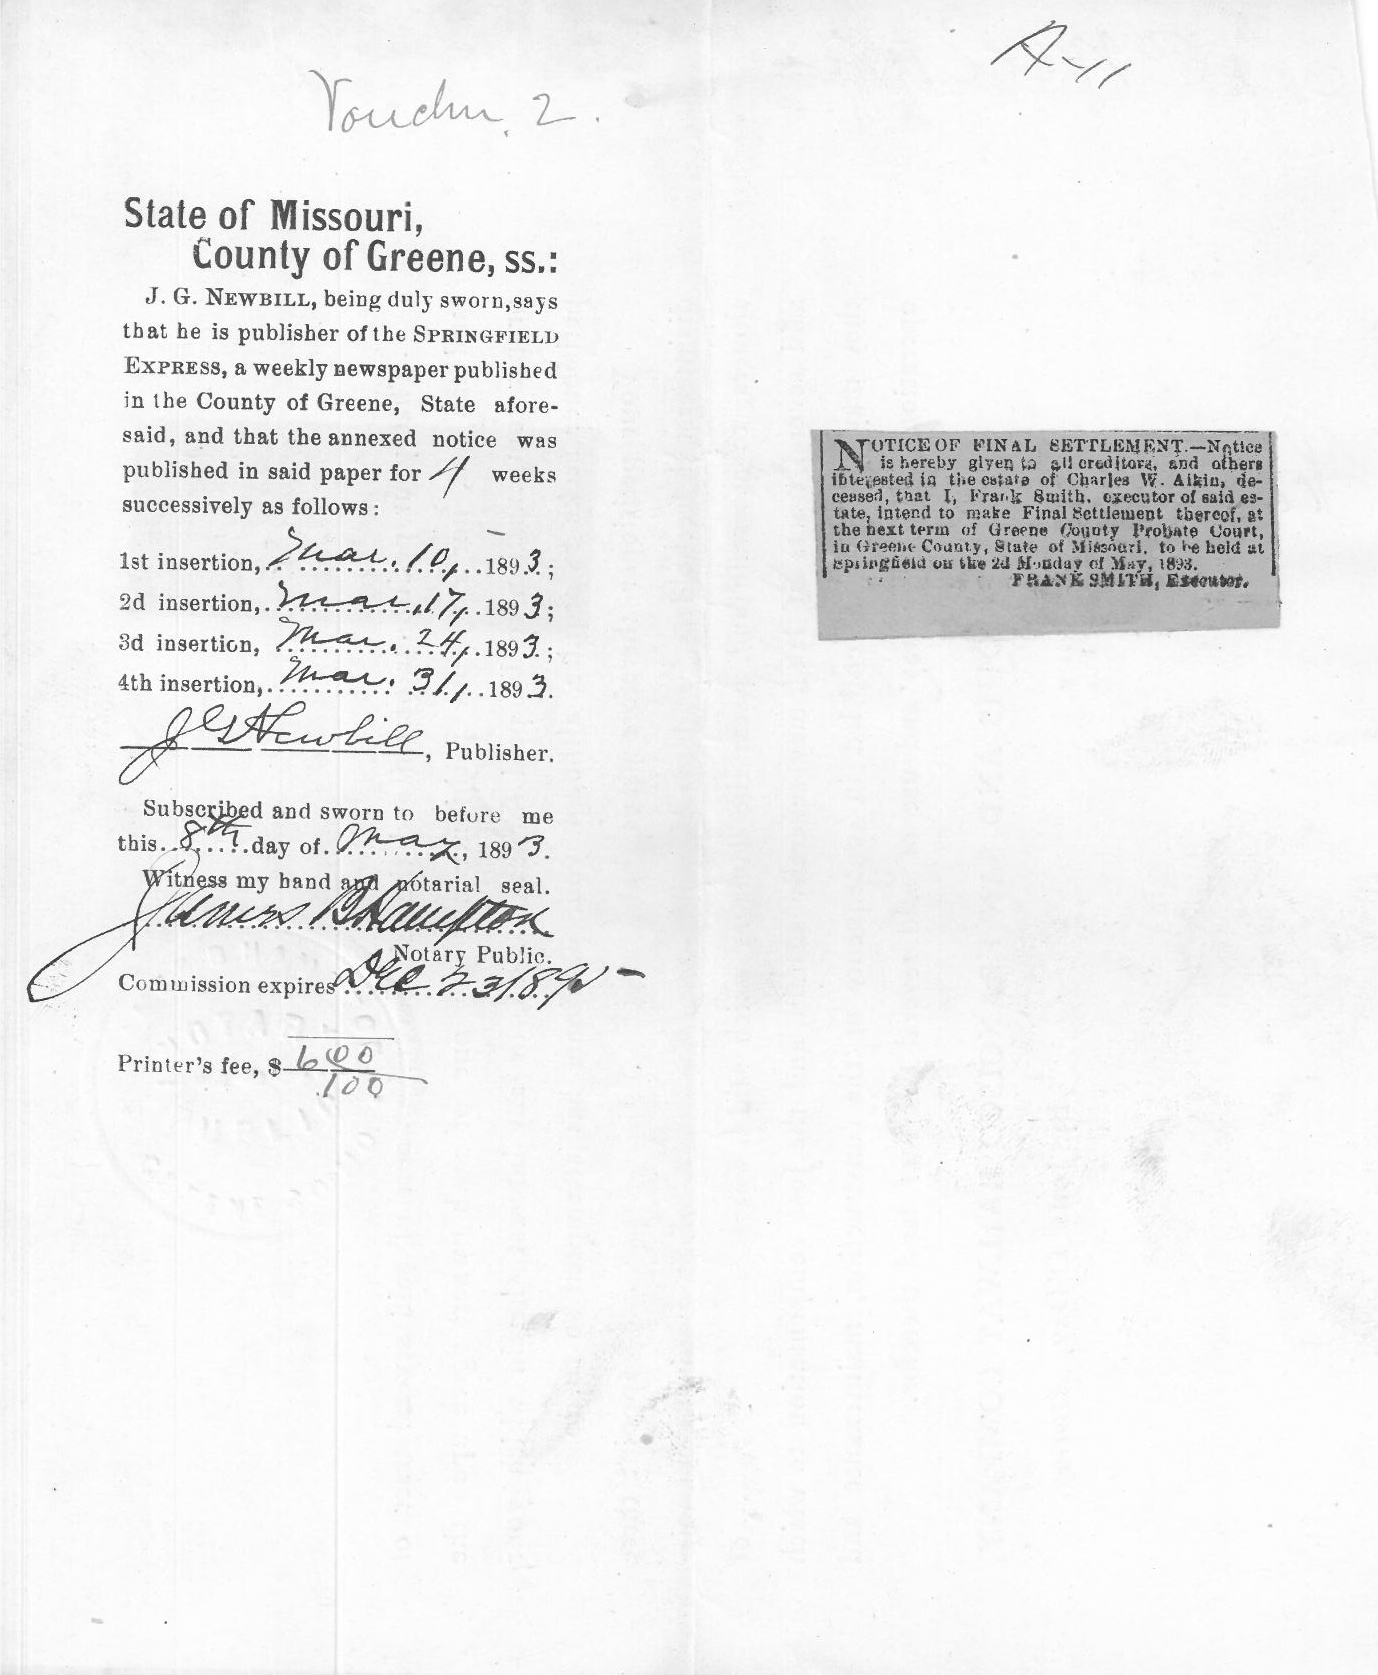 A-11
Voucher. 2.
State of Missouri,
County of Greene, ss.:
J. G. NEWBILL, being duly sworn, says
that he is publisher of the SPRINGFIELD
EXPRESS, a weekly newspaper published
in the County of Greene, State afore-
said, and that the annexed notice was
published in said paper for 4 weeks
successively as follows:
1st insertion, Mar. 10, 1893.;
2d insertion, Mar. 17, 1893;
3d insertion, Mar. 24, 1893.;
4th insertion, Mar. 31, 1893.
J G Newbill, Publisher.
Subscribed and sworn to before me
this 8th day of May, 1893.
Witness my hand and notarial seal.
James B Hampton
Notary Public.
Commission expires Dec 23 1895
Printer's fee, $ 6 00
100
NOTICE OF FINAL SETTLEMENT.—Notice
is hereby given to all creditors, and others
interested in the estate of Charles W. Aikin, de-
ceased, that I, Frank Smith, executor of said es-
tate, intend to make Final Settlement thereof, at
the next term of Greene County Probate Court,
in Greene County, State of Missouri, to be held at
Springfield on the 2d Monday of May, 1893.
FRANK SMITH, Executor.